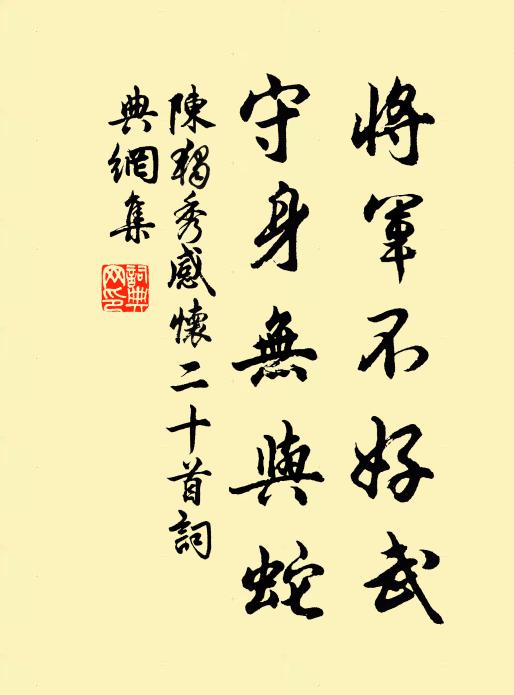 將軍不好武
守身無與蛇
陳獨秀感懷二十首詞
典網集
詞典
网印